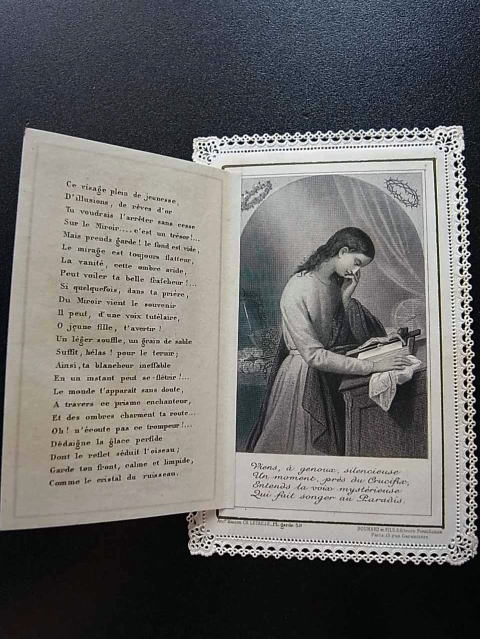 Ce visage plein de jeunesse,
D'illusions, de rêves d'or
Tu voudrais l'arrêter sans cesse
Sur le Miroir.... c'est un trésor!...
Mais prends garde! le fond est vide,
Le mirage est toujours flatteur,
La vanité, cette ombre aride,
Peut voiler ta belle fraîcheur!...
Si quelquefois, dans ta prière,
Du Miroir vient le souvenir
Il peut, d'une voix tutélaire,
O jeune fille, t'avertir!
Un léger souffle, un grain de sable
Suffit, hélas! pour le ternir;
Ainsi, ta blancheur ineffable
En un instant peut se flétrir!...
Le monde t'apparait sans doute,
A travers ce prisme enchanteur,
Et des ombres charment ta route...
Oh! n'écoute pas ce trompeur!...
Dédaigne la glace perfide
Dont le reflet séduit l'oiseau;
Garde ton front, calme et limpide,
Comme le cristal du ruisseau.
Viens, à genoux, silencieuse
Un moment, près du Crucifix,
Entends la voix mystérieuse
Qui fait songer au Paradis.
Maison Ch. LETAILLE, Pl. garde 50
BOUMARD et FILS, Editeurs Pontificaux
Paris, 15 rue Garancière.